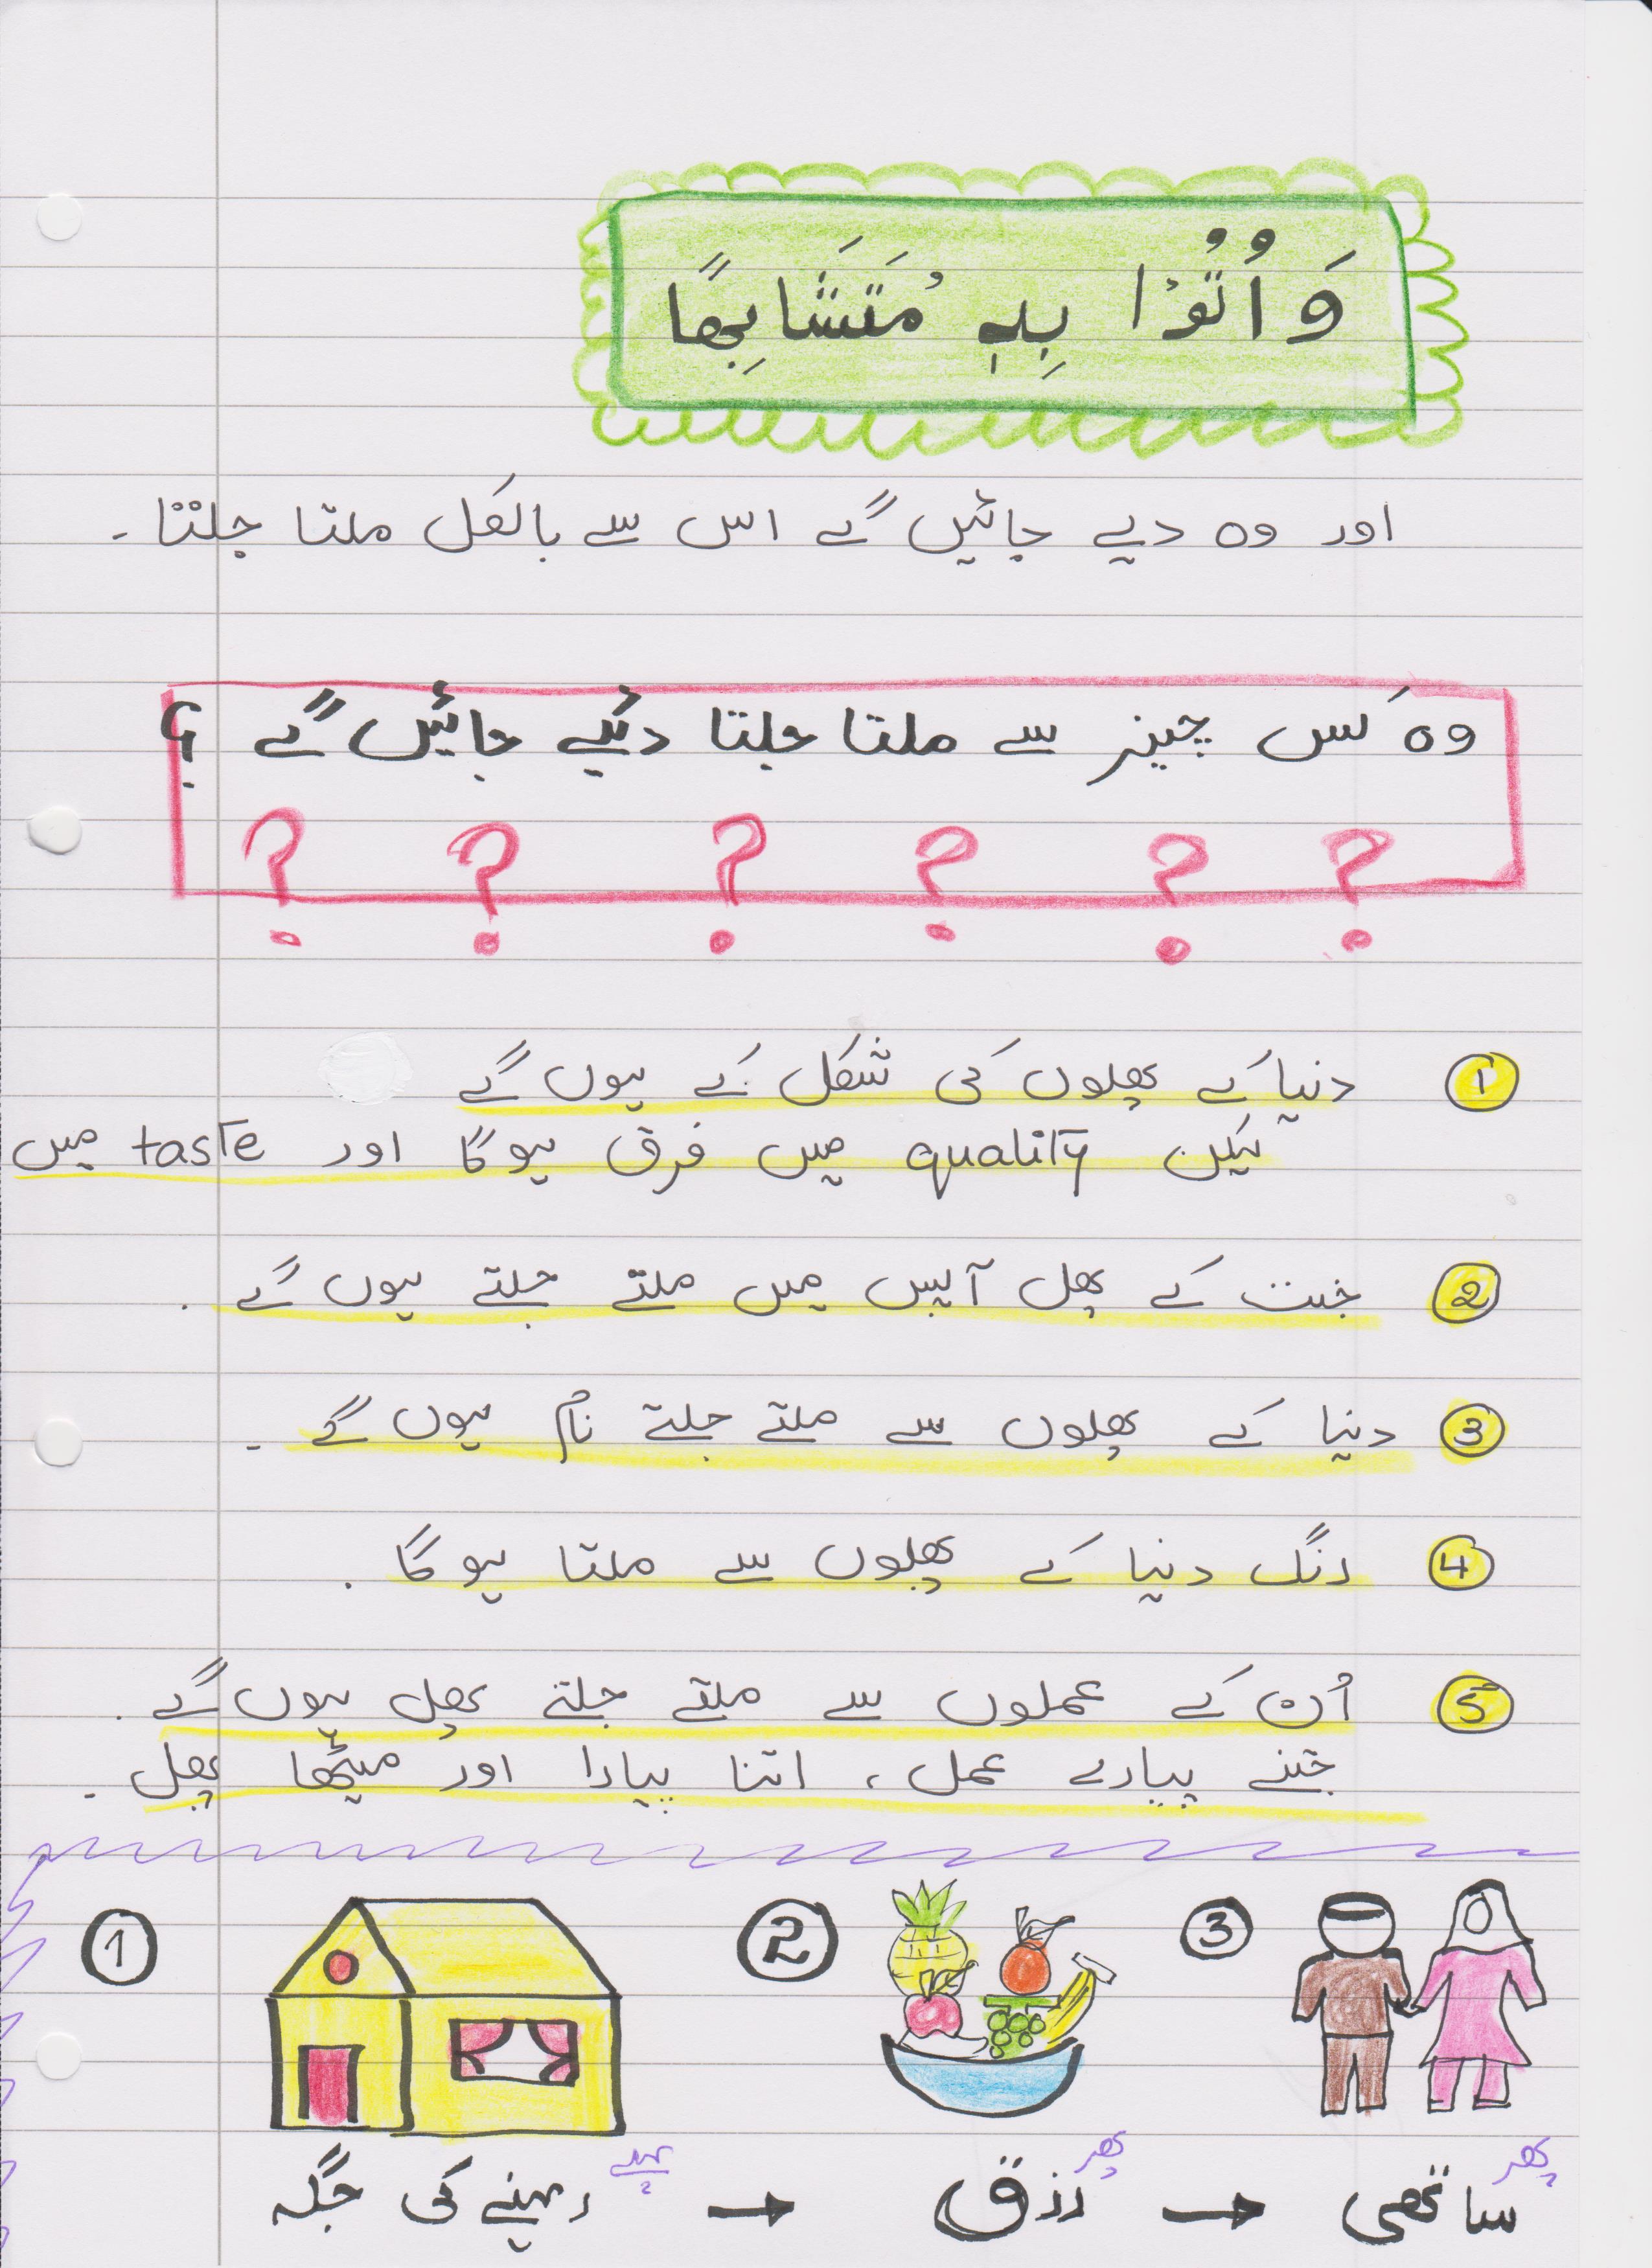 وَاُتُوْا بِهٖ مُتَشَابِهًا
اور وہ دیے جائیں گے اس سے بالکل ملتا جلتا۔
وہ کس چیز سے ملتا جلتا دئیے جائیں گے ؟
? ? ? ? ? ?
① دنیا کے پھلوں کی شکل کے ہوں گے
لیکن quality میں فرق ہوگا اور taste میں
② جنت کے پھل آپس میں ملتے جلتے ہوں گے ۔
③ دنیا کے پھلوں سے ملتے جلتے نام ہوں گے ۔
④ رنگ دنیا کے پھلوں سے ملتا ہوگا ۔
⑤ اُن کے عملوں سے ملتے جلتے پھل ہوں گے ۔
جتنے پیارے عمل، اتنا پیارا اور میٹھا پھل ۔
① ② ③
پہلے پھر پھر
رہنے کی جگہ → رزق → ساتھی